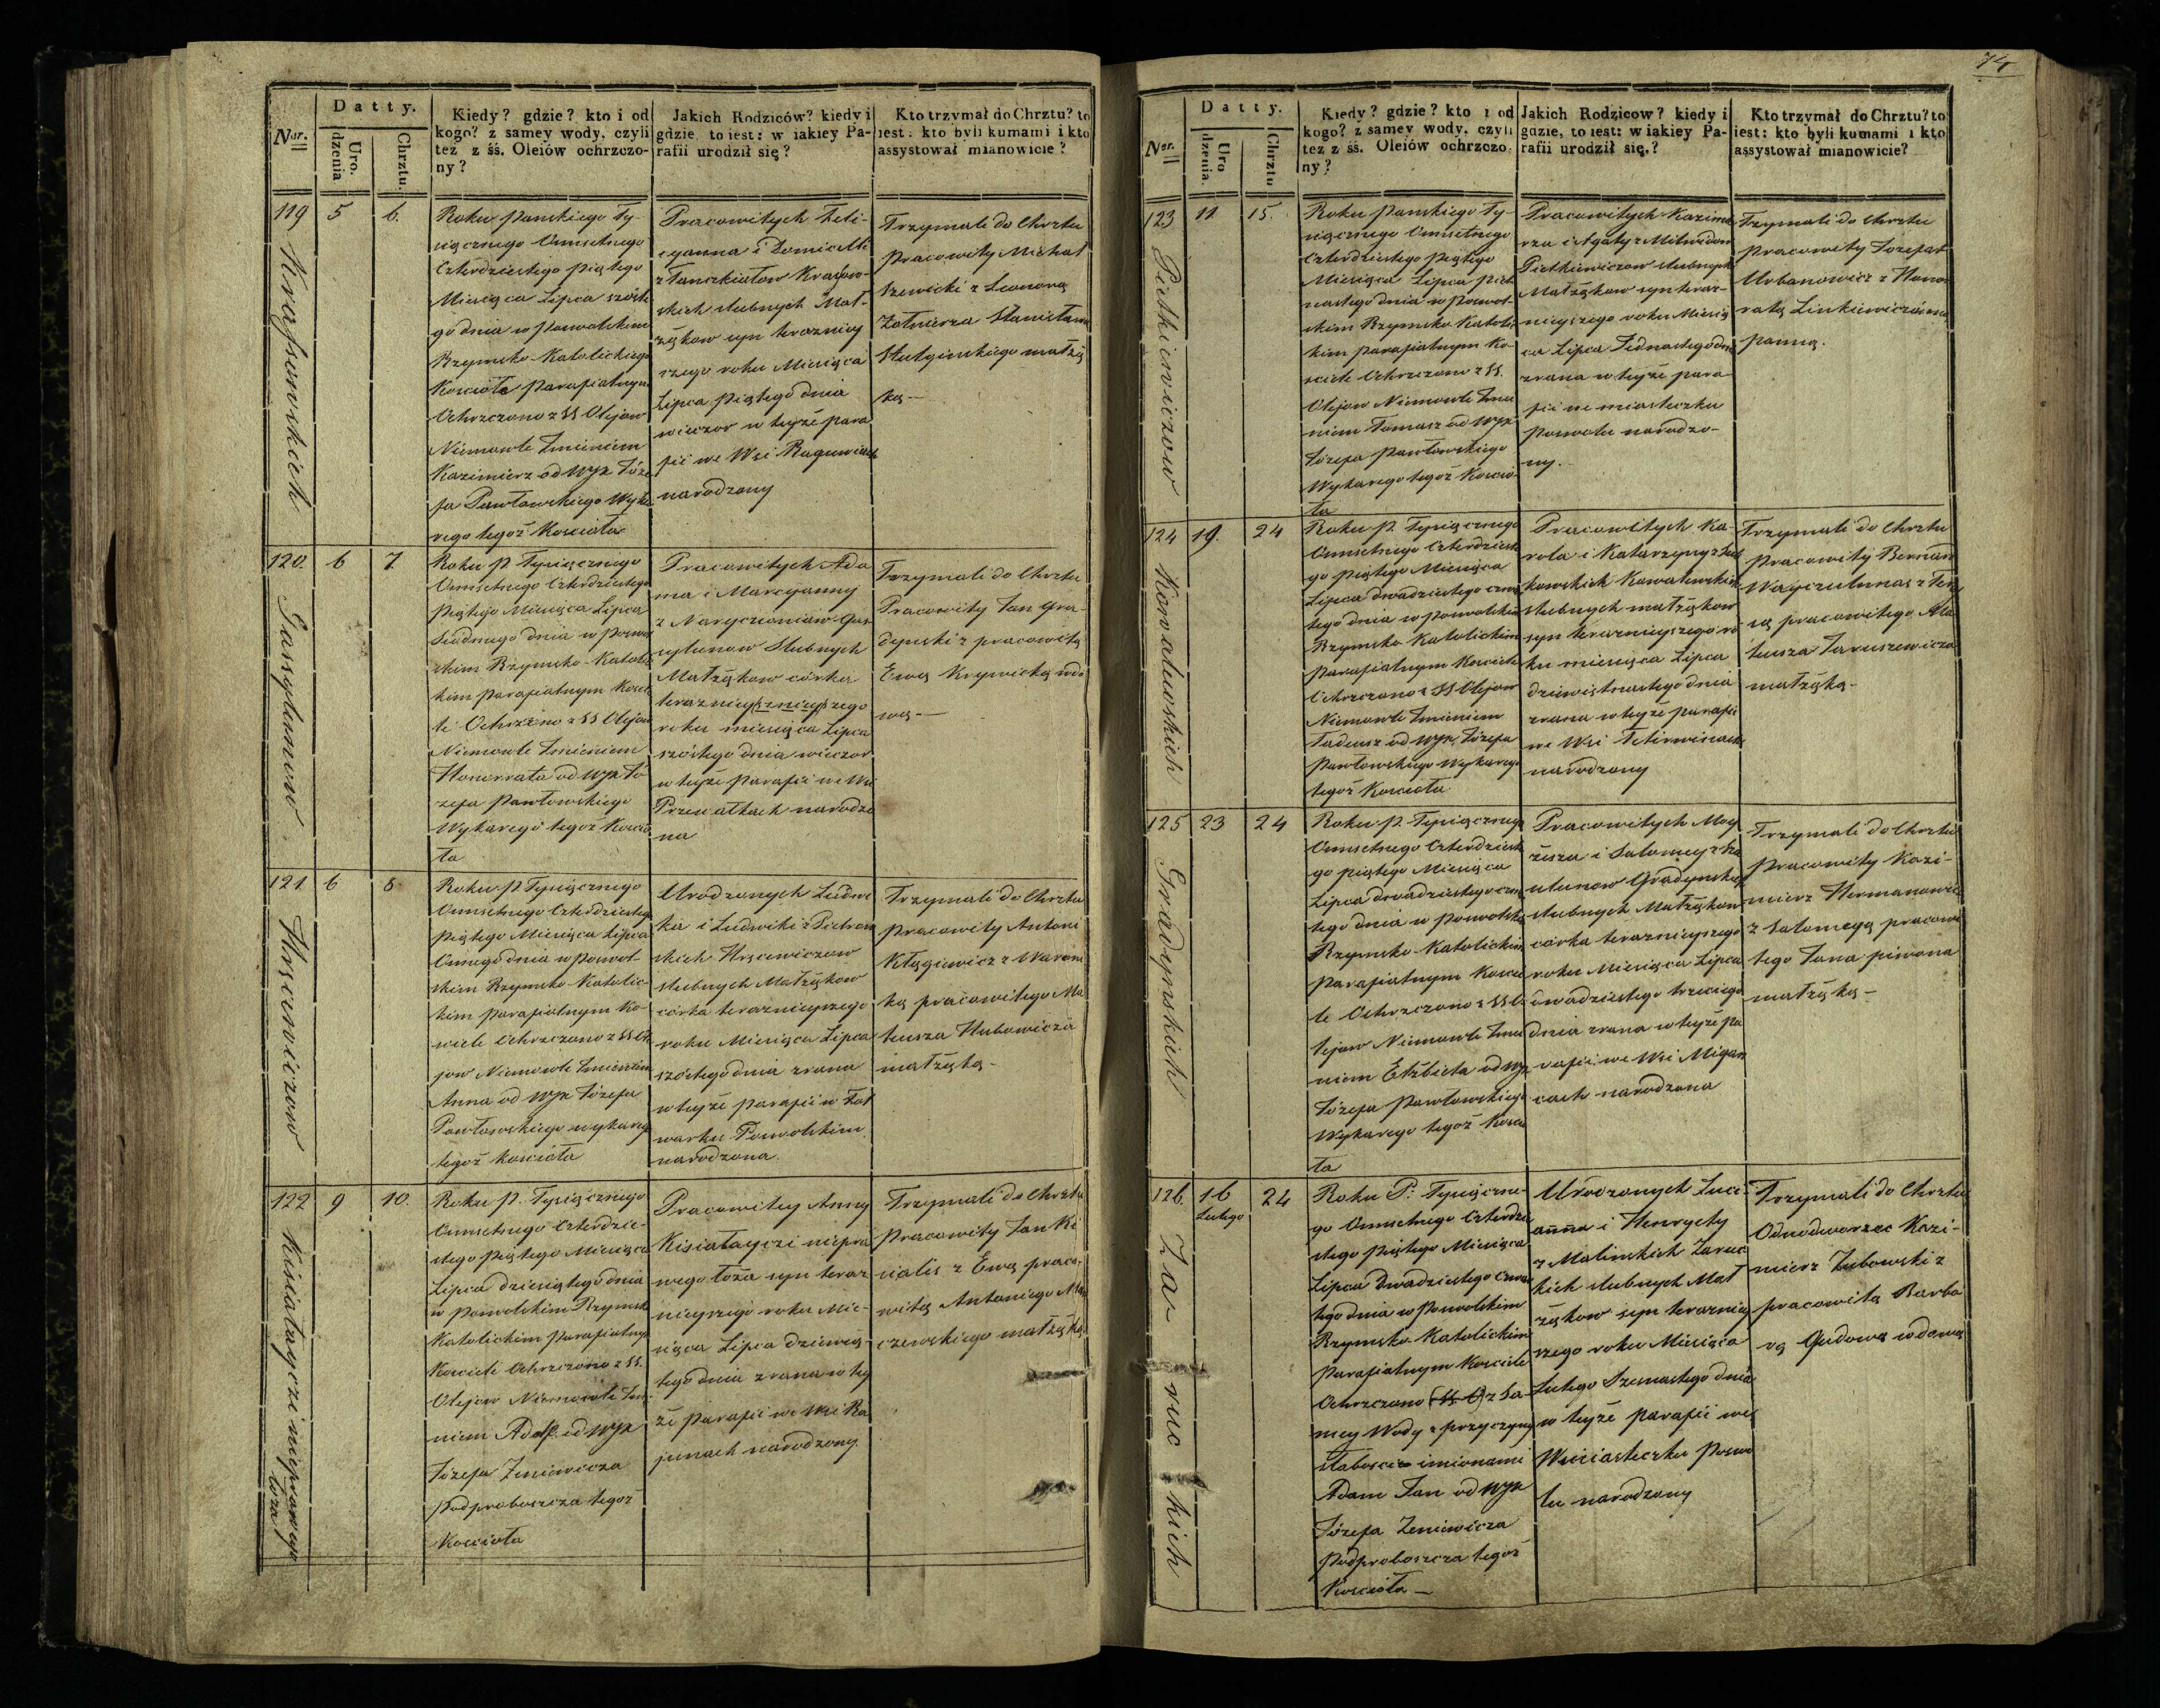 Datty.
Nor.
Urodzenia
Chrztu.
Kiedy? gdzie? kto i od
kogo? z samey wody, czyli
też z śś. Oleiów ochrzczo-
ny?
Jakich Rodziców? kiedy i
gdzie, to iest: w iakiey Pa-
rafii urodził się?
Kto trzymał do Chrztu? to
iest: kto byli kumami i kto
assystował mianowicie?
119
Krassowskich
5
6.
Roku Pańskiego Ty-
siącznego Osmsetnego
Czterdziestego piątego
Miesiąca Lipca szóste
go dnia w Poswolskim
Rzymsko-Katolickiego
Kościoła parafialnym
Ochrzczono z SS Olejow
Niemowle Imieniem
Kazimierz od WJX Józe
fa Pawłowskiego Wyka
rego tegoż Kościoła
Pracowitych Feli-
cyanna i Domicelli
skich slubnych Mał-
żąkow syn terazniey
szego roku Miesiąca
Lipca piątego dnia
wieczor w teyże para
fii we Wsi
narodzony
Trzymali do Chrztu
pracowity Michał
Szewicki z Leonorą
Żołnierza Stanisława
małżą
ką —
120.
Gasylunow
6
7
Roku P. Tysiącznego
Osmsetnego Czterdziestego
piątego Miesiąca Lipca
Siodmego dnia w poswol
skim Rzymsko-Katolic
kim parafialnym Kości
le Ochrzczono z SS Olejow
Niemowle Imieniem
Honorrata od WJX Jó
zefa Pawłowskiego
Wykarego tegoż Kościo
ła
Pracowitych Ada
ma i Marcyanny
z Naryczoniow Gas
sylunow Slubnych
Małżąkow córka
teraznieysznieyszego
roku miesiąca Lipca
szóstego dnia wieczor
w teyże Parafii we Wsi
narodzo
na
Trzymali do Chrztu
Pracowity Jan Gra-
dynski z pracowitą
Ewą Krywicką wdo
wą —
121
Hrscewiczow
6
8
Roku P. Tysiącznego
Osmsetnego Czterdziestego
Piątego Miesiąca Lipca
Osmego dnia w poswol-
skim Rzymsko-Katolic-
kim parafialnym Ko-
sciele Ochrzczono z SS Ole
jow Niemowle Imieniem
Anna od WJX Józefa
Pawłowskiego wykarego
tegoż kościoła
Urodzonych Ludwi
ka i Ludwiki z Pietrow
skich Hrscewiczow
slubnych Małżąkow
córka teraznieyszego
roku Miesiąca Lipca
szóstego dnia zrana
w teyże parafii w Fol
warku Poswolskim
narodzona.
Trzymali do Chrztu
pracowity Antoni
Kłągiewicz z Waroni
ką pracowitego Ma
teusza Hubowicza
małżąką —
122
Kisiałayczi nieprawego
łoża
9
10.
Roku P. Tysiącznego
Osmsetnego Czterdzie-
stego Piątego Miesiąca
Lipca dziesiątego dnia
w Poswolskim Rzymsko
Katolickim parafialnym
Kosciele Ochrzczono z SS.
Olejow Niemowle Imie-
niem Adolf od WJX
Józefa Zeniewicza
Podproboszcza tegoż
Kosciola
Pracowitey Anny
Kisiałayczi niepra
wego łoża syn teraz
nieyszego roku Mie-
siąca Lipca dziewią-
tego dnia zrana w tey
że parafii we Wsi Ra
junach narodzony.
Trzymali do Chrztu
pracowity Jan Ki
sialis z Ewą praco-
witą Antoniego
czewskiego małżąką.
74
Datty.
Nor.
Urodzenia.
Chrztu
Kiedy? gdzie? kto i od
kogo? z samey wody, czyli
też z śś. Oleiów ochrzczo-
ny?
Jakich Rodzicow? kiedy i
gdzie, to iest: w iakiey Pa-
rafii urodził się,?
Kto trzymał do Chrztu? to
iest: kto byli kumami i kto
assystował mianowicie?
123
Pietkiewiczow
11.
15.
Roku Pańskiego Ty-
siącznego Osmsetnego
Czterdziestego Piątego
Miesiąca Lipca Piet
nastego dnia w Poswol-
skim Rzymsko Katolic
kim parafialnym Ko-
sciele Ochrzczono z SS.
Olejow Niemowle Imie
niem Tomasz od WJX
Józefa Pawłowskiego
Wykarego tegoż Koscio
ła
Pracowitych Kazimie
rza i Agaty z Mitwidow
Pietkiewiczow slubnych
Małżąkow syn teraz-
nieyszego roku Miesią
ca Lipca Jednastego dnia
zrana w teyże para
fii we miasteczku
Poswolu narodzo-
ny.
Trzymali do Chrztu
pracowity Jozefat
Urbanowicz z Hono
ratą Linkiewiczówną
panną.
124
Kowalewskich
19.
24
Roku P. Tysiącznego
Osmsetnego Czterdzieste
go piątego Miesiąca
Lipca dwadziestego czwar
tego dnia w poswolskim
Rzymsko Katolickim
Parafialnym Kosciele
Ochrzczono z SS Olejow
Niemowle Imieniem
Tadeusz od WJX Józefa
Pawłowskiego Wykarego
tegoż Kosciola
Pracowitych Ka-
rola i Katarzyny z
kowskich Kowalewskich
slubnych małżąkow
syn teraznieyszego ro
ku miesiąca Lipca
dziewiętnastego dnia
zrana w teyże parafii
we Wsi
narodzony
Trzymali do Chrztu
pracowity Bernard
Wayczulunas z
są pracowitego Ma
teusza Januszewicza
małżąką —
125
Gradynskich
23
24
Roku P. Tysiącznego
Osmsetnego Czterdzieste
go piątego Miesiąca
Lipca dwadziestego czwar
tego dnia w Poswolskim
Rzymsko-Katolickim
Parafialnym Koscie
le Ochrzczono z SS O-
lejow Niemowle Imie
niem Elżbieta od WJX
Józefa Pawłowskiego
Wykarego tegoż Koscio
ła
Pracowitych Moy
żesza i Salomey z
ulunow Gradynskich
slubnych Małżąkow
córka teraznieyszego
roku Miesiąca Lipca
dwadziestego trzeciego
dnia zrana w teyże pa
rafii we Wsi Migan
cach narodzona
Trzymali do Chrztu
pracowity Kazi-
mierz Hermanowicz
z Salomeyą pracowi
tego Jana piwona
małżąką —
126.
Zaruckich
16
Lutego
24
Roku P: Tysiączne-
go Osmsetnego Czterdzie
stego Piątego Miesiąca
Lipca Dwadziestego Czwar
tego dnia w Poswolskim
Rzymsko-Katolickim
Parafialnym Kosciele
Ochrzczono z Sa-
mey Wody z przyczyny
słabosci imionami
Adam Jan od WJX
Józefa Zeniewicza
Podproboszcza tegoż
Kosciola —
Urodzonych Luci-
anna i Henryety
z Malinskich Zaruc
kich slubnych Mał
żąkow syn terazniey
szego roku Miesiąca
Lutego Szesnastego dnia
w teyże parafii we
Wmiasteczku Poswo
lu narodzony
Trzymali do Chrztu
Odnodworzec Kazi-
mierz Zubowski z
pracowitą Barba
rą Gudową wdową